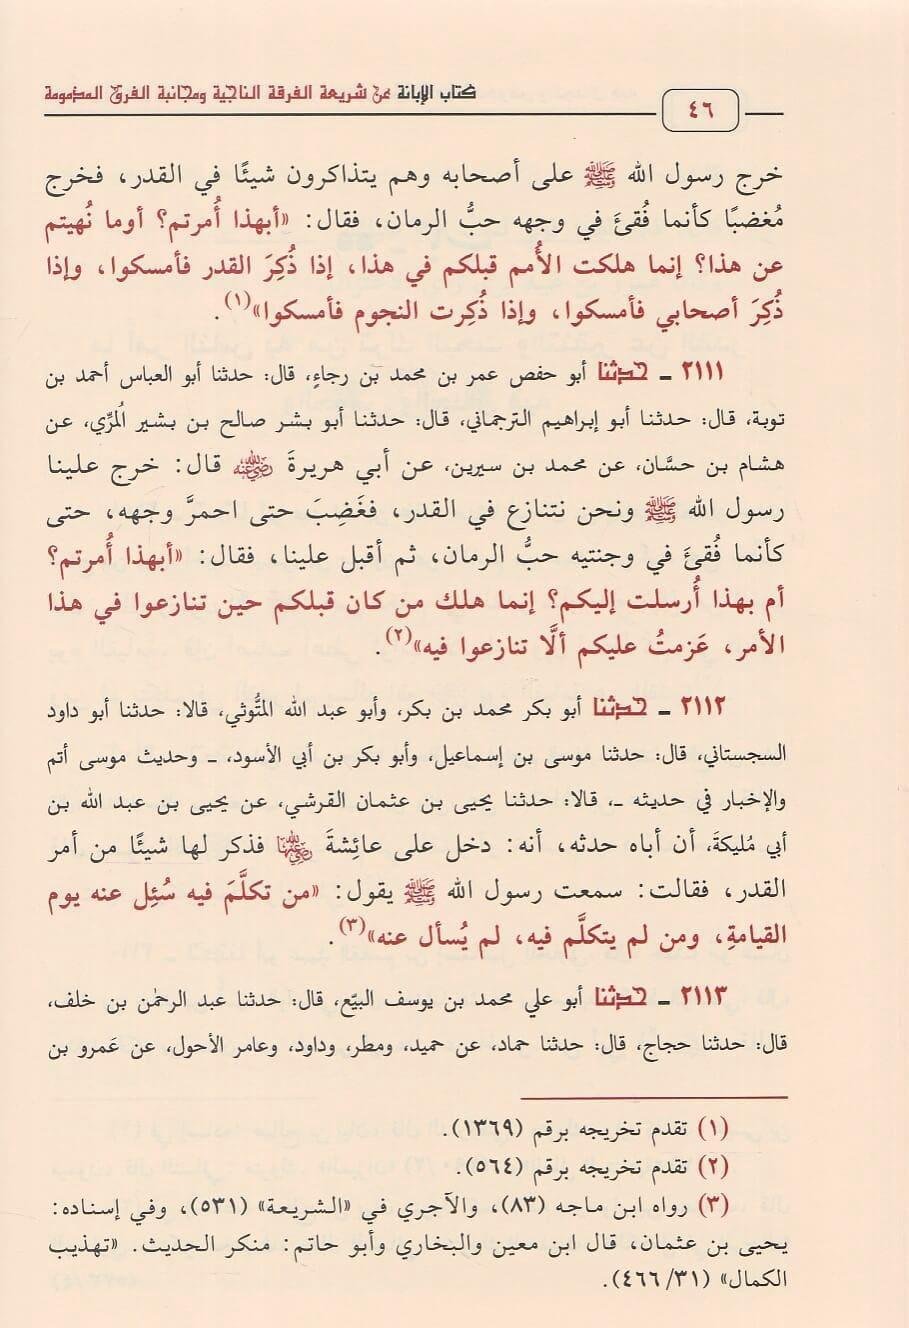 كتاب الإبانة عن شريعة الفرقة الناجية ومجانبة الفرق المذمومة
٤٦
خرج رسول الله ﷺ على أصحابه وهم يتذاكرون شيئًا في القدر، فخرج
مُغضبًا كأنما فُقئَ في وجهه حبُّ الرمان، فقال: «أبهذا أُمرتم؟ أوما نُهيتم
عن هذا؟ إنما هلكت الأُمم قبلكم في هذا، إذا ذُكِرَ القدر فأمسكوا، وإذا
ذُكِرَ أصحابي فأمسكوا، وإذا ذُكِرت النجوم فأمسكوا»(١).
٢١١١ ـ حدثنا أبو حفص عمر بن محمد بن رجاءٍ، قال: حدثنا أبو العباس أحمد بن
توبة، قال: حدثنا أبو إبراهيم الترجماني، قال: حدثنا أبو بشر صالح بن بشير المُرِّي، عن
هشام بن حسَّان، عن محمد بن سيرين، عن أبي هريرةَ رضي الله عنه قال: خرج علينا
رسول الله ﷺ ونحن نتنازع في القدر، فغَضِبَ حتى احمرَّ وجهه، حتى
كأنما فُقئَ في وجنتيه حبُّ الرمان، ثم أقبل علينا، فقال: «أبهذا أُمرتم؟
أم بهذا أُرسلت إليكم؟ إنما هلك من كان قبلكم حين تنازعوا في هذا
الأمر، عَزمتُ عليكم ألَّا تنازعوا فيه»(٢).
٢١١٢ ـ حدثنا أبو بكر محمد بن بكر، وأبو عبد الله المتُّوثي، قالا: حدثنا أبو داود
السجستاني، قال: حدثنا موسى بن إسماعيل، وأبو بكر بن أبي الأسود، ـ وحديث موسى أتم
والإخبار في حديثه ـ، قالا: حدثنا يحيى بن عثمان القرشي، عن يحيى بن عبد الله بن
أبي مُليكةَ، أن أباه حدثه، أنه: دخل على عائِشةَ رضي الله عنها فذكر لها شيئًا من أمر
القدر، فقالت: سمعت رسول الله ﷺ يقول: «من تكلَّمَ فيه سُئِل عنه يوم
القيامةِ، ومن لم يتكلَّم فيه، لم يُسأل عنه»(٣).
٢١١٣ ـ حدثنا أبو علي محمد بن يوسف البيّع، قال: حدثنا عبد الرحمٰن بن خلف،
قال: حدثنا حجاج، قال: حدثنا حماد، عن حميد، ومطر، وداود، وعامر الأحول، عن عَمرو بن
(١) تقدم تخريجه برقم (١٣٦٩).
(٢) تقدم تخريجه برقم (٥٦٤).
(٣) رواه ابن ماجه (٨٣)، والآجري في «الشريعة» (٥٣١)، وفي إسناده:
يحيى بن عثمان، قال ابن معين والبخاري وأبو حاتم: منكر الحديث. «تهذيب
الكمال» (٣١/ ٤٦٦).